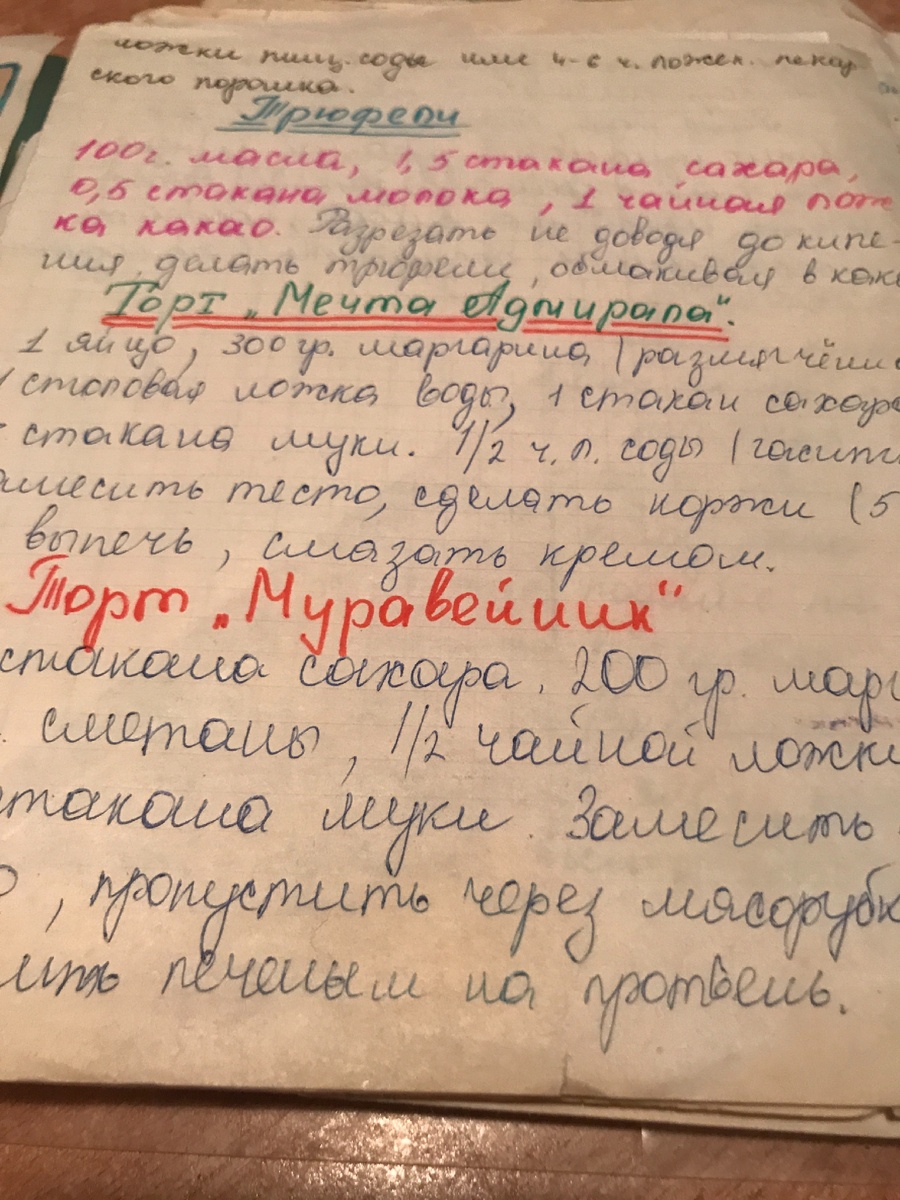 ложки пищ. соды или 4-6 ч. ложек. пекар
ского порошка.
Трюфели
100 г. масла, 1,5 стакана сахара,
0,5 стакана молока, 1 чайная лож
ка какао. Разрезать не доводя до кипе-
ния, делать трюфели, обмакивая в кака
Торт „Мечта Адмирала".
1 яйцо, 300 гр. маргарина (размягчённ
1 столовая ложка воды, 1 стакан сахара
стакана муки. 1/2 ч. л. соды (гасить
амесить тесто, сделать коржи (5
выпечь, смазать кремом.
Торт „Муравейник"
стакана сахара. 200 гр. марг
сметаны, 1/2 чайной ложки
такана муки. Замесить
, пропустить через мясорубк
печеным на протвень.